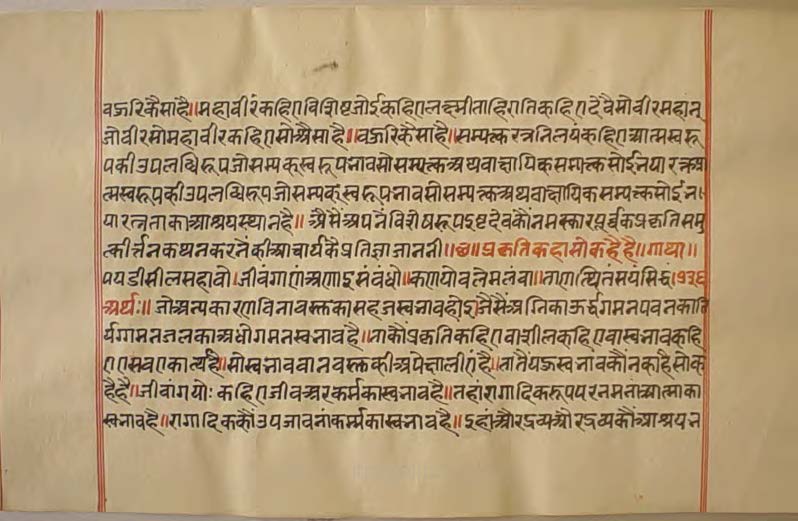 बहुरिकैसाहै॥महावीरंकहिएविशिष्टजोईकहिएलक्ष्मीताहिरातिकहिएदेवैसोवीरमहान्
जोवीरसोमहावीरकहिएसोअैसाहै॥बहुरिकैसाहै॥सम्यत्करत्ननिलयंकहिएआत्मस्वरू
पकीउपलब्धिरूपजोसम्यक्स्वरूपभावसोसम्यत्कअथवाक्षायिकसम्यत्कसोईभयारत्नआ
त्मस्वरूपकीउपलब्धिरूपजोसम्यक्स्वरूपभावसोसम्यत्कअथवाक्षायिकसम्यत्कसोईभ
यारत्नताकाआश्रयस्थानहै॥अैसैंअपनैंविशेषरूपइष्टदेवकौंनमस्कारपूर्वकप्रकृतिसमु
त्कीर्त्तनकथनकरनैंकीआचार्यकैप्रतिज्ञाजाननी॥छ॥प्रकृतिकहासोकहैहै॥गाथा॥
पयडीसीलसहावो।जीवंगाणंअणाइसंबंधो॥कणयोवलेमलंवा॥ताणत्थित्तंसयंसिद्धं
अर्थः॥जोअन्यकारणविनावस्तुकासहजस्वभावहोइजैसैंअग्निकाऊर्द्धगमनपवनकाति
र्यगमनजलकाअधोगमनस्वभावहै॥ताकौंप्रकृतिकहिएवाशीलकहिएवास्वभावकहि
एएसबएकार्त्थहै॥सोस्वभाववानवस्तुकीअपेक्षालीएंहै॥तातैंयहुस्वभावकौंनकाहैसोक
हैहै॥जीवांगयोःकहिएजीवअरकर्मकास्वभावहै॥तहांरागादिकरूपपरनमनांआत्माका
स्वभावहै॥रागादिककौंउपजावनांकर्म्मकास्वभावहै॥इहांऔरद्रव्यऔरद्रव्यकौंआश्रयन